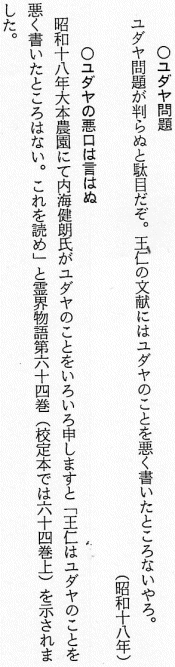 〇ユダヤ問題
ユダヤ問題が判らぬと駄目だぞ。王仁の文献にはユダヤのことを悪く書いたところないやろ。
(昭和十八年)
〇ユダヤの悪口は言はぬ
昭和十八年大本農園にて内海健朗氏がユダヤのことをいろいろ申しますと「王仁はユダヤのことを
悪く書いたところはない。これを読め」と霊界物語第六十四巻(校定本では六十四巻上)を示されま
した。